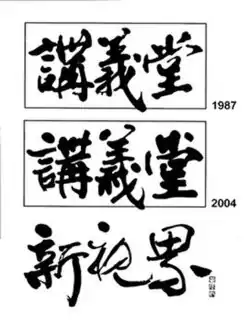 講義堂
1987
講義堂
2004
新視界